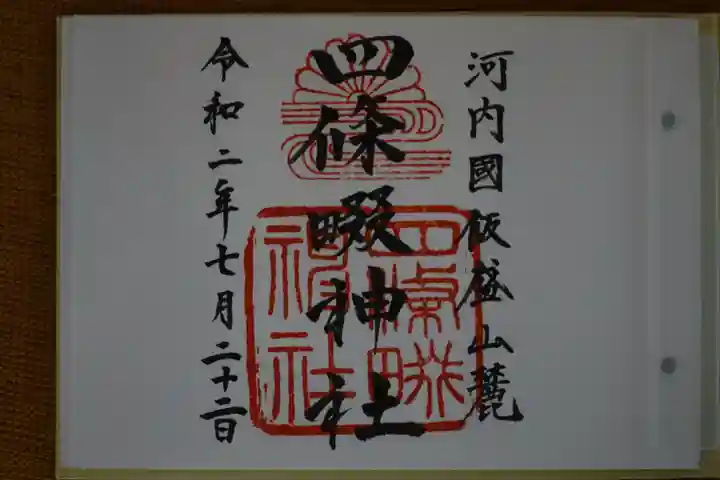 河内國飯盛山麓
四條畷神社
四條畷神社
令和二年七月二十二日